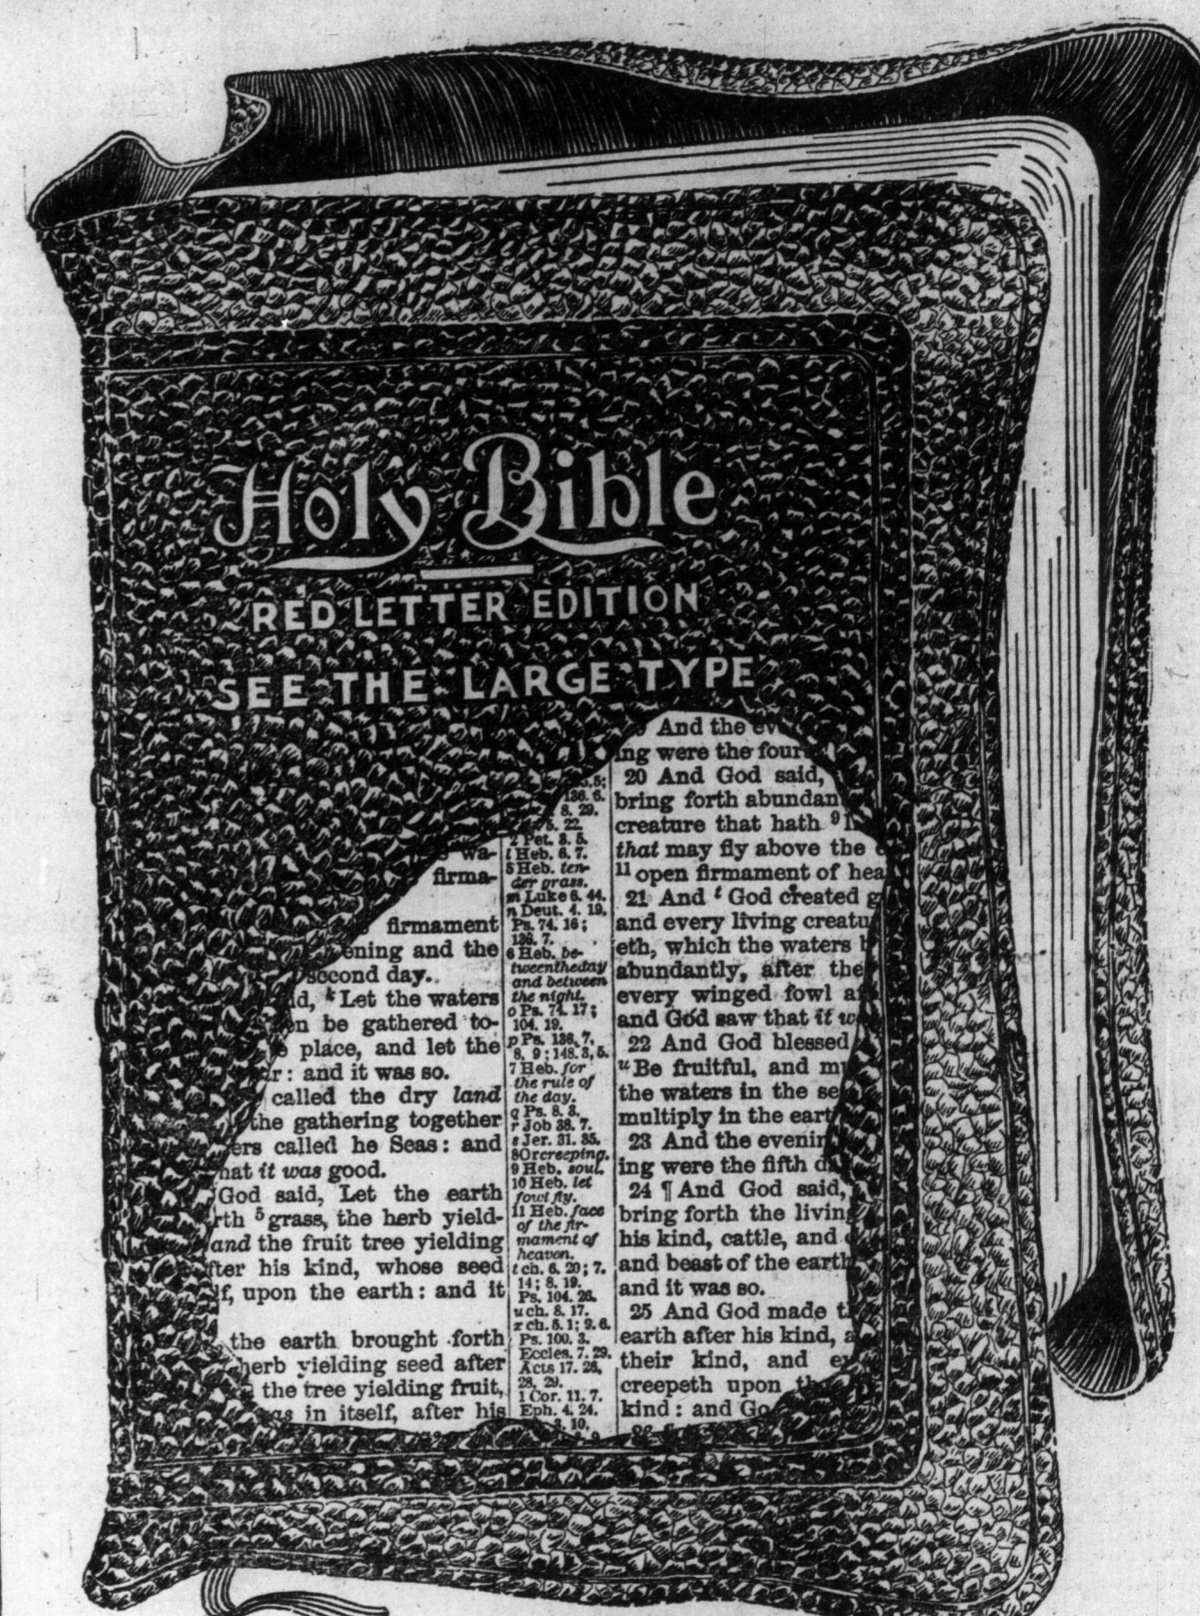 Holy Bible
RED LETTER EDITION
SEE THE LARGE TYPE
wa-
firma-
firmament
ening and the
second day.
id, k Let the waters
en be gathered to-
place, and let the
r: and it was so.
called the dry land
the gathering together
ers called he Seas: and
hat it was good.
God said, Let the earth
rth 5 grass, the herb yield-
and the fruit tree yielding
fter his kind, whose seed
lf, upon the earth: and it
the earth brought forth
herb yielding seed after
the tree yielding fruit,
as in itself, after his
5.5;
136. 6.
8. 29.
5. 22.
2 Pet. 3. 5.
l Heb. 6. 7.
5 Heb. ten-
der grass.
m Luke 6. 44.
n Deut. 4. 19.
Ps. 74. 16;
136. 7.
6 Heb. be-
tween the day
and between
the night.
o Ps. 74. 17;
104. 19.
p Ps. 136. 7,
8, 9; 148. 3, 5.
7 Heb. for
the rule of
the day.
q Ps. 8. 3.
r Job 38. 7.
s Jer. 31. 35.
8 Or creeping.
9 Heb. soul.
10 Heb. let
fowl fly.
11 Heb. face
of the fir-
mament of
heaven.
t ch. 6. 20; 7.
14; 8. 19.
Ps. 104. 26.
u ch. 8. 17.
x ch. 5. 1; 9. 6.
Ps. 100. 3.
Eccles. 7. 29.
Acts 17. 26,
28, 29.
1 Cor. 11. 7.
Eph. 4. 24.
3. 10.
And the eve
ing were the four
20 And God said,
bring forth abundan
creature that hath 9 li
that may fly above the e
11 open firmament of hea
21 And t God created g
and every living creatu
eth, which the waters b
abundantly, after the
every winged fowl af
and God saw that it w
22 And God blessed
u Be fruitful, and mu
the waters in the se
multiply in the eart
23 And the evenin
ing were the fifth d
24 ¶ And God said,
bring forth the livin
his kind, cattle, and
and beast of the earth
and it was so.
25 And God made t
earth after his kind, a
their kind, and e
creepeth upon th
kind: and Go